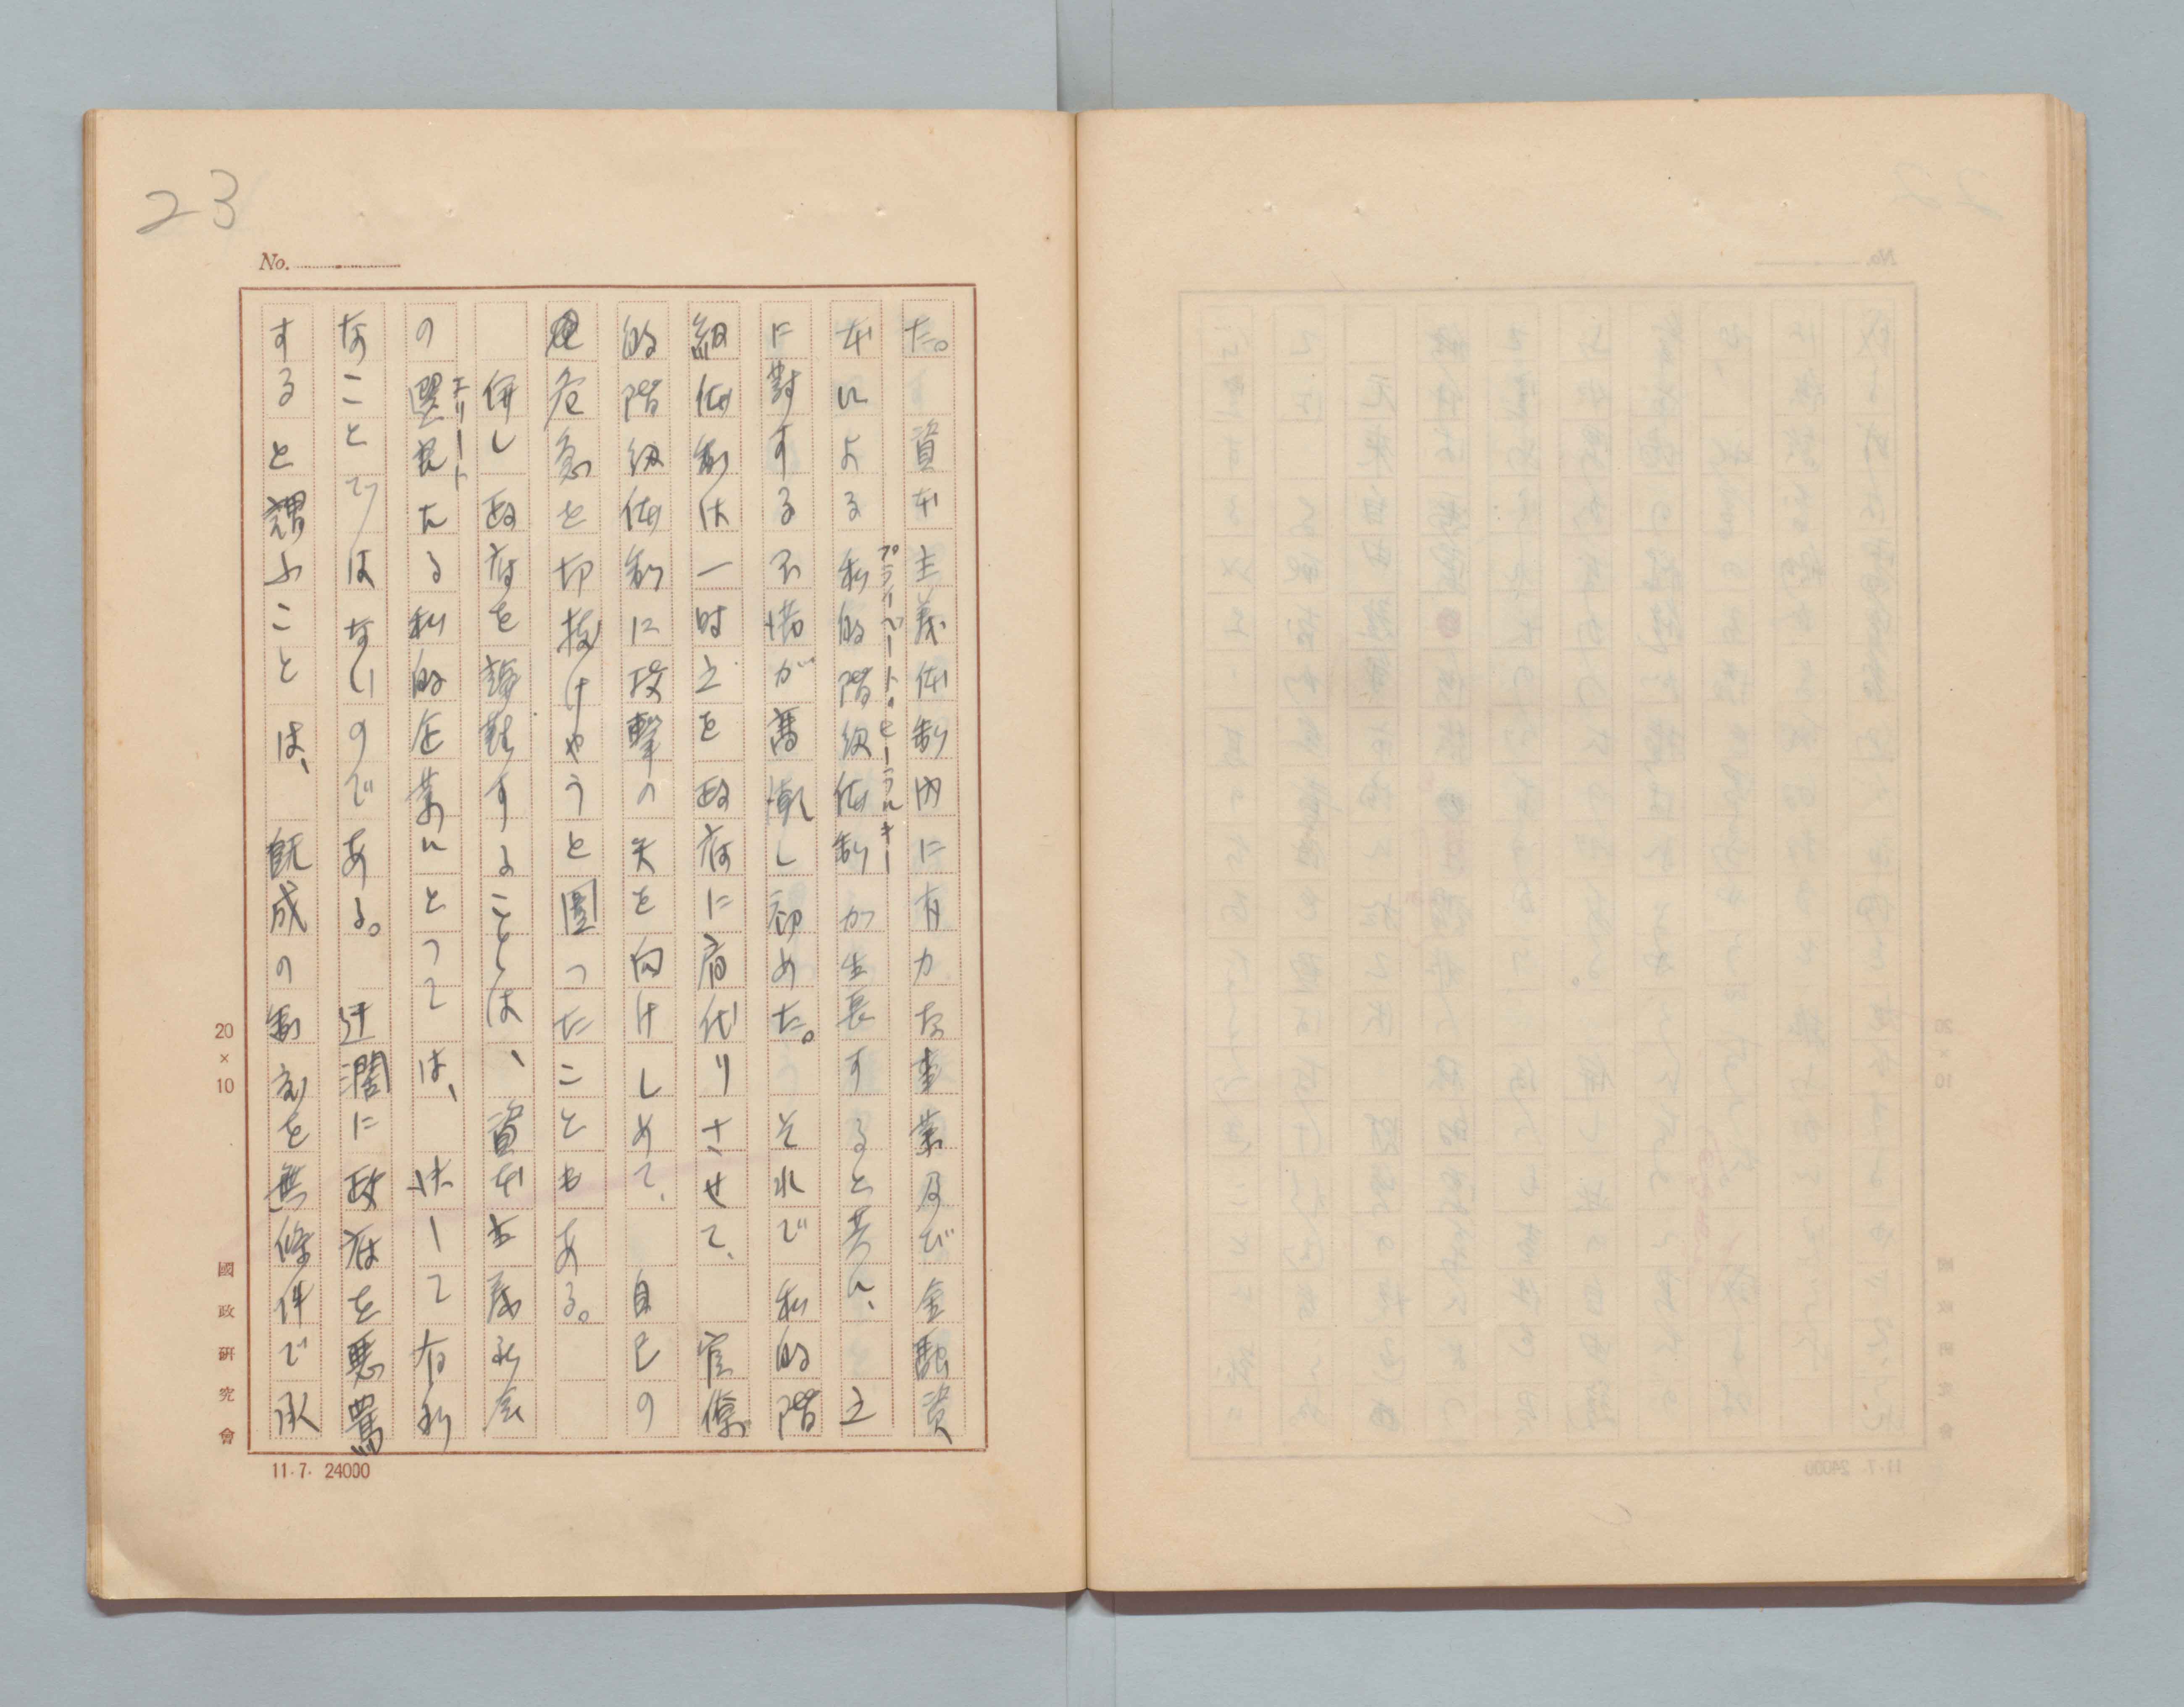 23
No.
た。 資本主義体制内に有力な事業及び金融資
本による私的階級体制が生長すると共に、之
プライベート・ヒーラルキー
に對する不滿が高潮し初めた。 それで私的階
級体制は一時之を政府に肩代りさせて、 官僚
的階級体制に攻撃の矢を向けしめて、 自己の
危急を切抜けやうと圖ったこともある。
併し政府を非難することは、資本主義社会
の選良たる私的企業にとつては、 決して有利
エリート
なことではないのである。 迂濶に政府を悪罵
すると謂ふことは、 既成の制度を無條件で承
20×10
國政研究會
11.7. 24000